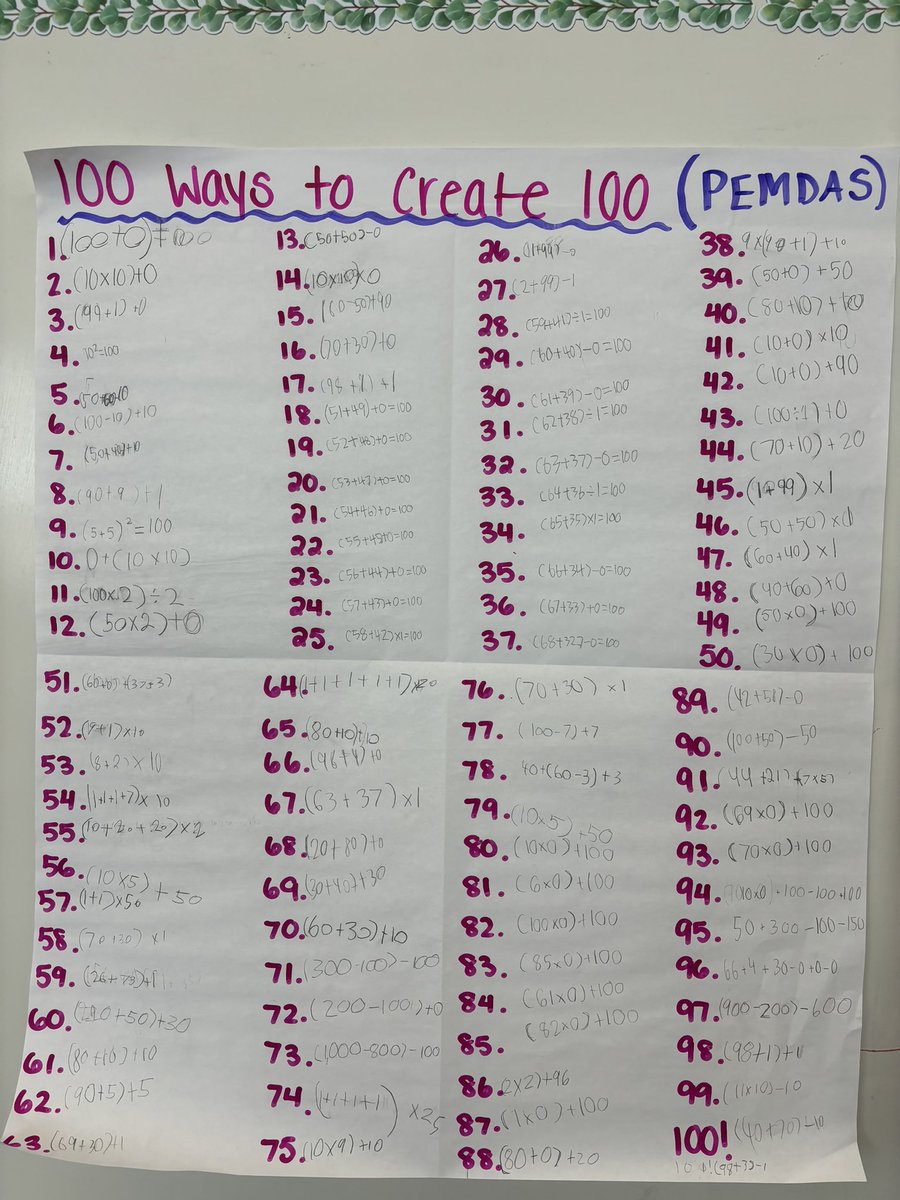 100 Ways to Create 100 (PEMDAS)
1. (100+0)=100
2. (10x10)+0
3. (99+1)+0
4. 10²=100
5.
6. (100-10)+10
7.
8. (90+9)+1
9. (5+5)²=100
10. 0+(10x10)
11. (100x2)÷2
12. (50x2)+0
13. (50+50)-0
14. (10x10)
15. (60-50)+90
16. (70+30)+0
17. (98+1)+1
18. (51+49)+0=100
19. (52+48)+0=100
20. (53+47)+0=100
21. (54+46)+0=100
22. (55+45)+0=100
23. (56+44)+0=100
24. (57+43)+0=100
25. (58+42)x1=100
26.
27. (2+99)-1
28. (59+41)÷1=100
29. (60+40)-0=100
30. (61+39)-0=100
31. (62+38)÷1=100
32. (63+37)-0=100
33. (64+36÷1=100
34. (65+35)x1=100
35. (66+34)-0=100
36. (67+33)+0=100
37. (68+32)-0=100
38. 9x(9+1)+10
39. (50+0)+50
40. (80+10)+10
41. (10+0)x10
42. (10+0)+90
43. (100÷1)+0
44. (70+10)+20
45. (1+99)x1
46. (50+50)x1
47. (60+40)x1
48. (40+60)+0
49. (50x0)+100
50. (30x0)+100
51.
52. (9+1)x10
53. (8+2)x10
54. (1+1+1+7)x10
55. (10+20+20)x2
56. (10x5)+50
57. (1+1)x50
58. (70+30)x1
59.
60. +50)+30
61. (80+10)+10
62. (90+5)+5
63. (69+30)+1
64. (1+1+1+1+1)x20
65. (80+10)+10
66. (96+4)+0
67. (63+37)x1
68. (20+80)+0
69. (30+40)+30
70. (60+30)+10
71. (300-100)-100
72. (200-100)+0
73. (1,000-800)-100
74. (1+1+1+1)x25
75. (10x9)+10
76. (70+30)x1
77. (100-7)+7
78. 40+(60-3)+3
79. (10x5)+50
80. (10x0)+100
81. (6x0)+100
82. (100x0)+100
83. (85x0)+100
84. (61x0)+100
85. (82x0)+100
86. 2x2)+96
87. (1x0)+100
88. (80+0)+20
89.
90. (100+50)-50
91.
92. (69x0)+100
93. (70x0)+100
94. +100-100+100
95. 50+300-100-150
96. 66+4+30-0+0-0
97. (900-200)-600
98. (98+1)+1
99. (11x10)-10
100! (40+70)-10